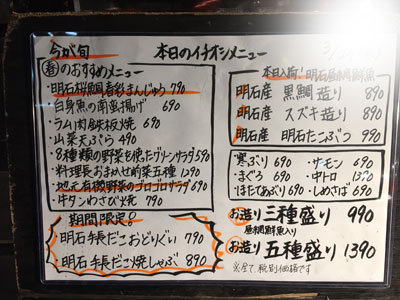 今が旬
本日のイチオシメニュー
春のおすすめメニュー
明石桜鯛春彩まんじゅう 790
白身魚の南蛮揚げ 690
・ラム肉鉄板焼 690
・山菜天ぷら 490
・8種類の野菜を使ったグリーンサラダ 590
・料理長おまかせ前菜五種 1290
・地元有機野菜のゴロゴロサラダ 690
・牛タンわさび焼 790
期間限定!
明石手長だこおどりぐい 790
明石手長だこ焼しゃぶ 890
本日入荷!明石昼網鮮魚
明石産 黒鯛造り 890
明石産 スズキ造り 890
明石産 明石たこぶつ 990
・寒ぶり 690 ・サーモン 690
・まぐろ 690 ・中トロ 1390
・ほたてあぶり 690 ・しめさば 690
お造り三種盛り 990
昼網鮮魚入り
お造り五種盛り 1390
※全て税別価格です